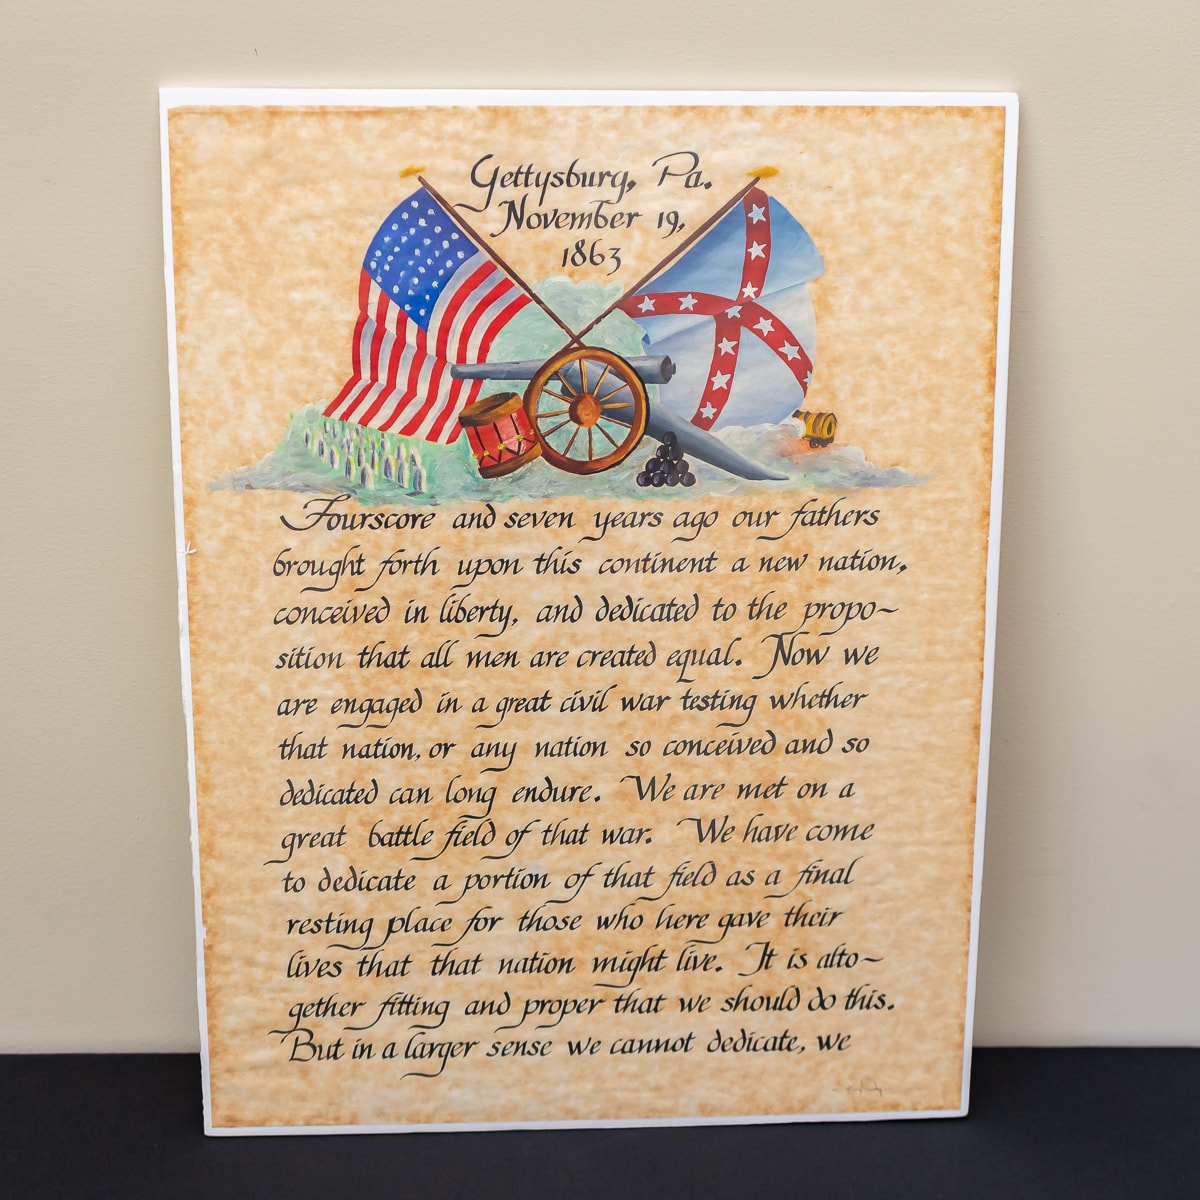 Gettysburg, Pa.
November 19,
1863
Fourscore and seven years ago our fathers
brought forth upon this continent a new nation,
conceived in liberty, and dedicated to the propo~
sition that all men are created equal. Now we
are engaged in a great civil war testing whether
that nation, or any nation so conceived and so
dedicated can long endure. We are met on a
great battle field of that war. We have come
to dedicate a portion of that field as a final
resting place for those who here gave their
lives that that nation might live. It is alto~
gether fitting and proper that we should do this.
But in a larger sense we cannot dedicate, we